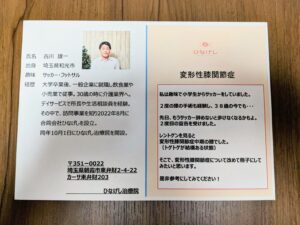 氏名 古川 雄一
出身 埼玉県和光市
趣味 サッカー・フットサル
経歴 大学卒業後、一般企業に就職し飲食業や
小売業で従事。30歳の時に介護業界へ。
デイサービスで所長や生活相談員を経験。
その中で、訪問事業を知り2022年8月に
合同会社ひなげしを設立。
同年10月1日にひなげし治療院を開設。
〒351ー0022
埼玉県朝霞市東弁財2-4-22
カーサ東弁財203
ひなげし治療院
ひなげし
変形性膝関節症
私は趣味で小学生からサッカーをしていました。
2度の膝の手術も経験し、38歳の今でも・・・
先日、もうサッカー辞めないと歩けなくなるかもよ。
2度目の宣告を受けました。
レントゲンを見ると
変形性膝関節症中期の膝でした。
(トゲトゲが結構ある状態)
そこで、変形性膝関節症について改めて冊子にして
みたいと思います。
是非参考にしてみてください!